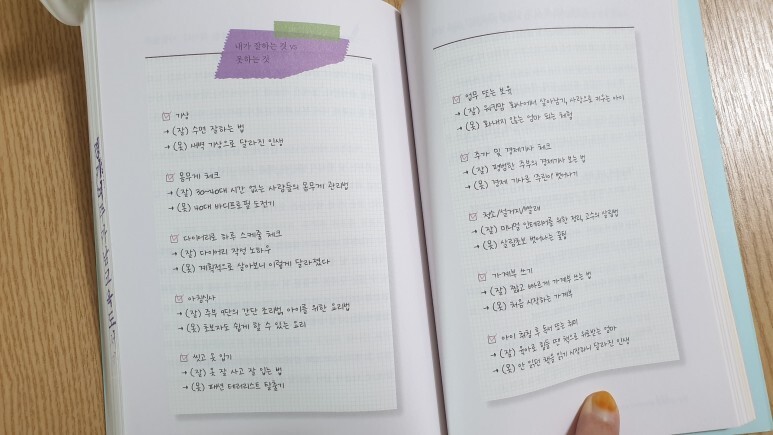 내가 잘하는 것 vs
못하는 것
☑ 기상
→ (잘) 수면 잘하는 법
→ (못) 새벽 기상으로 달라진 인생
☑ 몸무게 체크
→ (잘) 30~40대 시간 없는 사람들의 몸무게 관리법
→ (못) 40대 바디프로필 도전기
☑ 다이어리로 하루 스케줄 체크
→ (잘) 다이어리 작성 노하우
→ (못) 계획적으로 살아보니 이렇게 달라졌다
☑ 아침식사
→ (잘) 주부 9단의 간단 조리법, 아이를 위한 요리법
→ (못) 초보자도 쉽게 할 수 있는 요리
☑ 씻고 옷 입기
→ (잘) 옷 잘 사고 잘 입는 법
→ (못) 패션 테러리스트 탈출기
☑ 업무 또는 보육
→ (잘) 워킹맘 회사에서 살아남기, 사랑으로 키우는 아이
→ (못) 화내지 않는 엄마 되는 체험
☑ 주가 및 경제기사 체크
→ (잘) 평범한 주부의 경제기사 보는 법
→ (못) 경제 기사로 '주린이' 벗어나기
☑ 청소/설거지/빨래
→ (잘) 미니멀 인테리어를 위한 정리, 고수의 살림법
→ (못) 살림초보 벗어나는 꿀팁
☑ 가계부 쓰기
→ (잘) 쉽고 빠르게 가계부 쓰는 법
→ (못) 처음 시작하는 가계부
☑ 아이 취침 후 독서 또는 취미
→ (잘) 육아로 힘들 땐 책으로 위로받는 엄마
→ (못) 안 읽던 책을 읽기 시작하니 달라진 인생